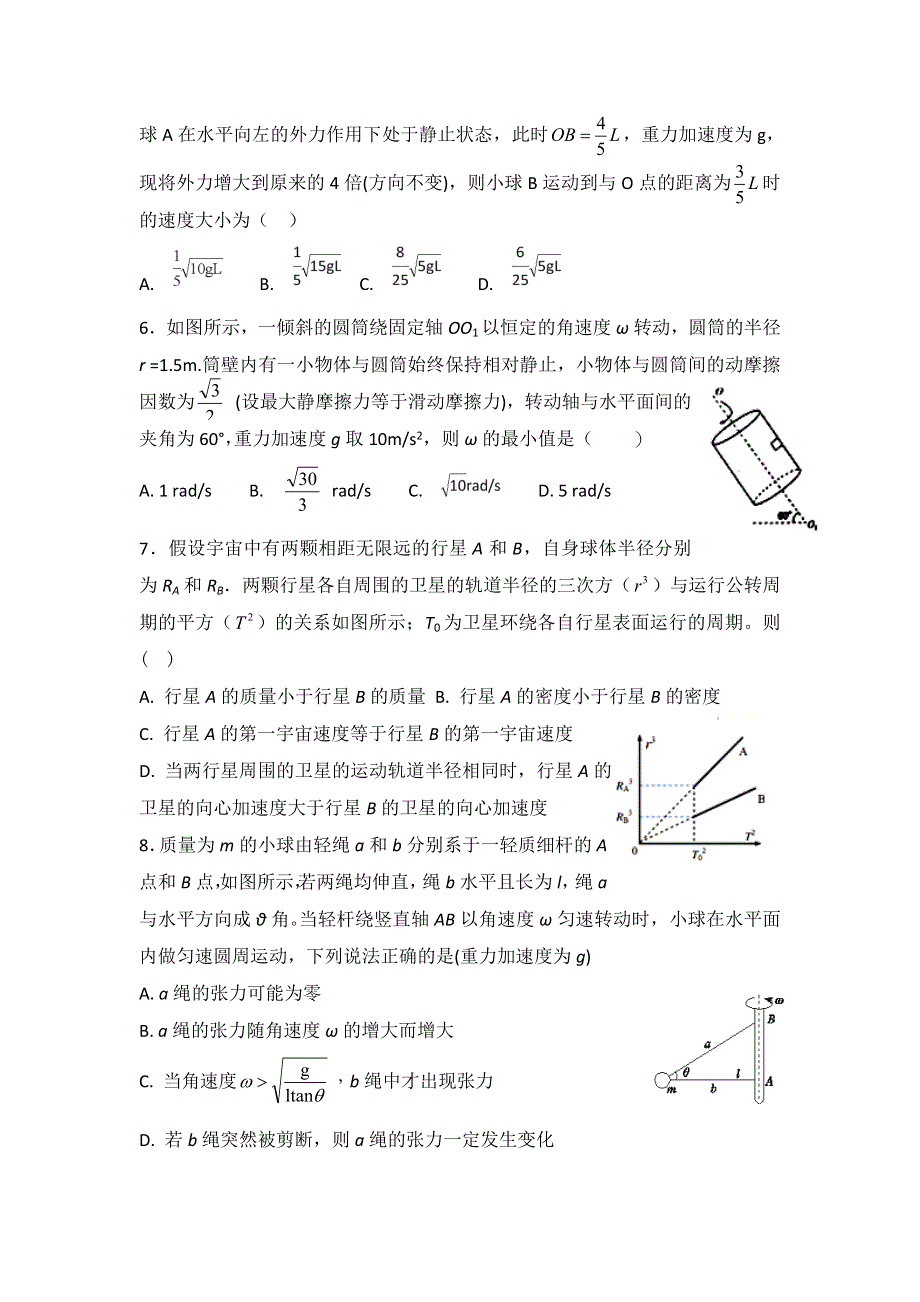 球 A 在水平向左的外力作用下处于静止状态，此时 OB = 4/5 L，重力加速度为 g，
现将外力增大到原来的 4 倍(方向不变)，则小球 B 运动到与 O 点的距离为 3/5 L 时
的速度大小为（ ）
A. 1/5 √10gL B. 1/5 √15gL C. 8/25 √5gL D. 6/25 √5gL
6．如图所示，一倾斜的圆筒绕固定轴 OO₁ 以恒定的角速度 ω 转动，圆筒的半径
r =1.5m.筒壁内有一小物体与圆筒始终保持相对静止，小物体与圆筒间的动摩擦
因数为 √3/2 (设最大静摩擦力等于滑动摩擦力)，转动轴与水平面间的
夹角为 60°，重力加速度 g 取 10m/s²，则 ω 的最小值是（ ）
A. 1 rad/s B. √30/3 rad/s C. √10rad/s D. 5 rad/s
O
60°
O₁
7．假设宇宙中有两颗相距无限远的行星 A 和 B，自身球体半径分别
为 R_A 和 R_B．两颗行星各自周围的卫星的轨道半径的三次方（r³）与运行公转周
期的平方（T²）的关系如图所示；T₀ 为卫星环绕各自行星表面运行的周期。则
( )
A. 行星 A 的质量小于行星 B 的质量 B. 行星 A 的密度小于行星 B 的密度
C. 行星 A 的第一宇宙速度等于行星 B 的第一宇宙速度
D. 当两行星周围的卫星的运动轨道半径相同时，行星 A 的
卫星的向心加速度大于行星 B 的卫星的向心加速度
r³
A
R_A³
B
R_B³
T²
0 T₀²
8．质量为 m 的小球由轻绳 a 和 b 分别系于一轻质细杆的 A
点和 B 点，如图所示，若两绳均伸直，绳 b 水平且长为 l，绳 a
与水平方向成 ϑ 角。当轻杆绕竖直轴 AB 以角速度 ω 匀速转动时，小球在水平面
内做匀速圆周运动，下列说法正确的是(重力加速度为 g)
A. a 绳的张力可能为零
B. a 绳的张力随角速度 ω 的增大而增大
C. 当角速度 ω > √(g/ltanθ)，b 绳中才出现张力
D. 若 b 绳突然被剪断，则 a 绳的张力一定发生变化
ω
B
a
θ l A
m b